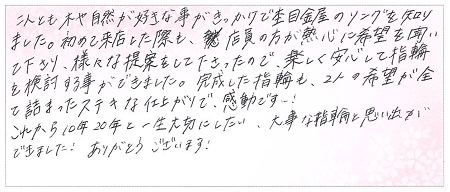 二人とも木や自然が好きな事がきっかけで杢目金屋のリングを知り
ました。初めて来店した際も、店員の方が熱心に希望を聞い
て下さり、様々な提案をして下さったので、楽しく安心して指輪
を検討する事ができました。完成した指輪も、2人の希望が全
て詰まったステキな仕上がりで、感動です～!
これから10年20年と一生大切にしたい、大事な指輪と思い出が
できました! ありがとうございます!